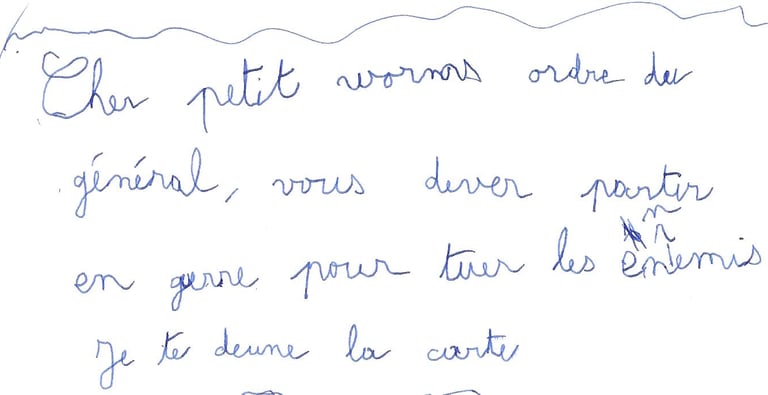 Cher petit worms ordre du
général, vous dever partir
en gerre pour tuer les ennemis
Je te deune la carte